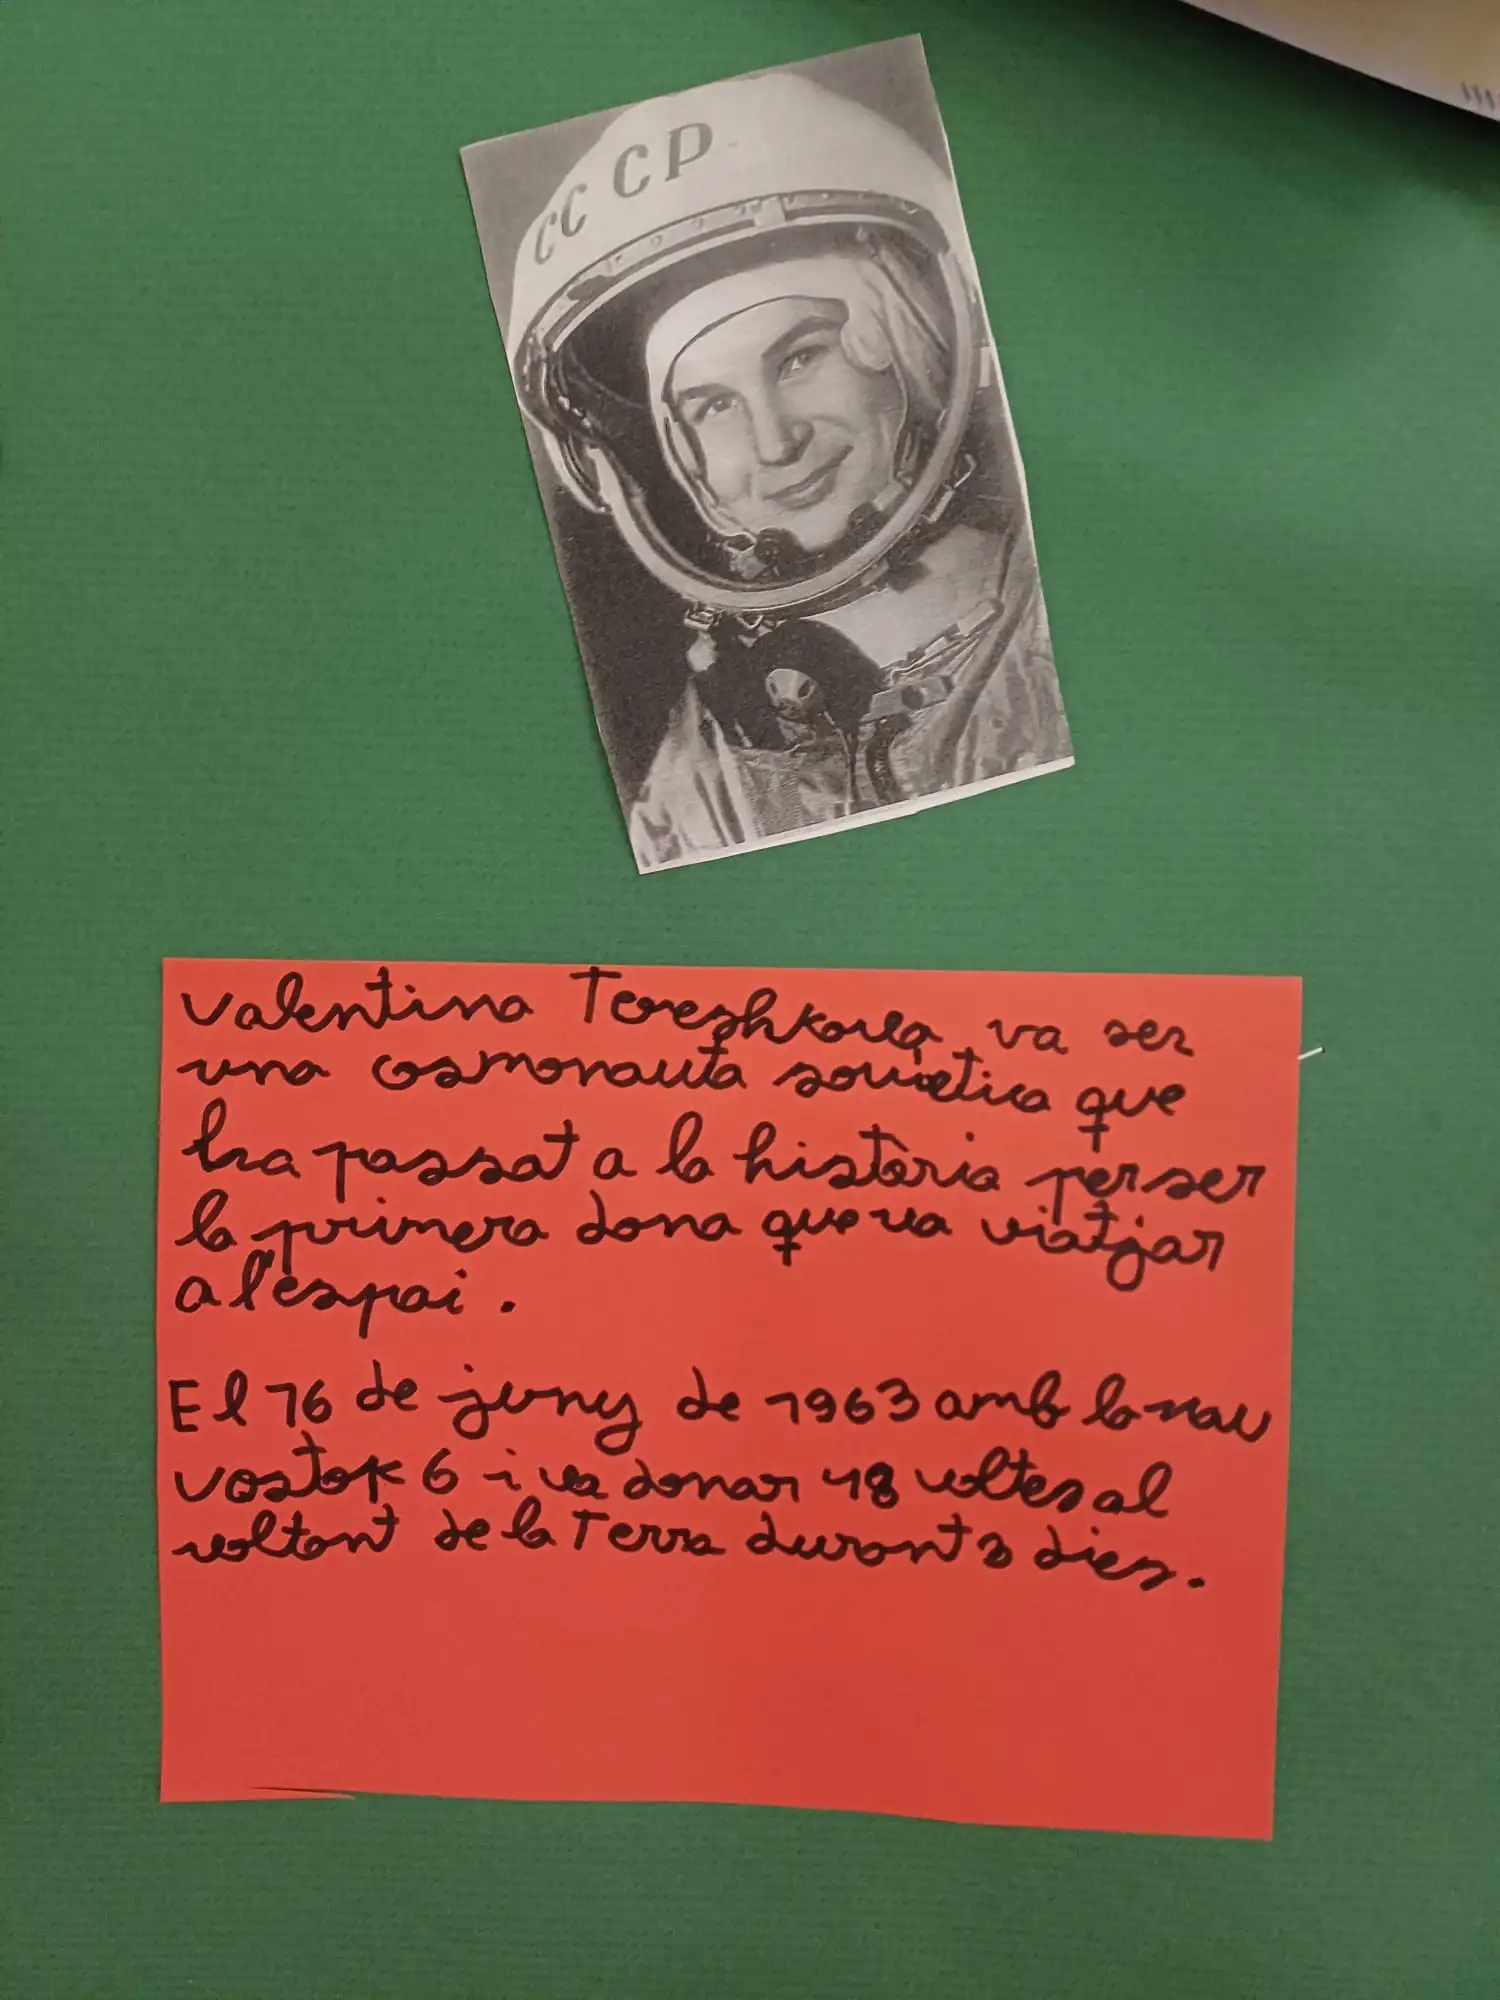 CCCP
Valentina Tereshkova, va ser
una cosmonauta soviètica que
ha passat a la història per ser
la primera dona que va viatjar
a l'espai.
El 16 de juny de 1963 amb la nau
Vostok 6 i va donar 48 voltes al
voltant de la Terra durant 3 dies.